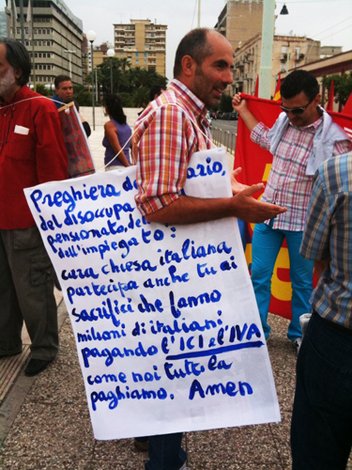 Preghiera d ario,
del disoccupa
pensionato, de
dell'impiegato:
cara chiesa italiana
partecipa anche tu ai
sacrifici che fanno
milioni di italiani
pagando l'ICI e l'IVA
come noi tutti la
paghiamo. Amen